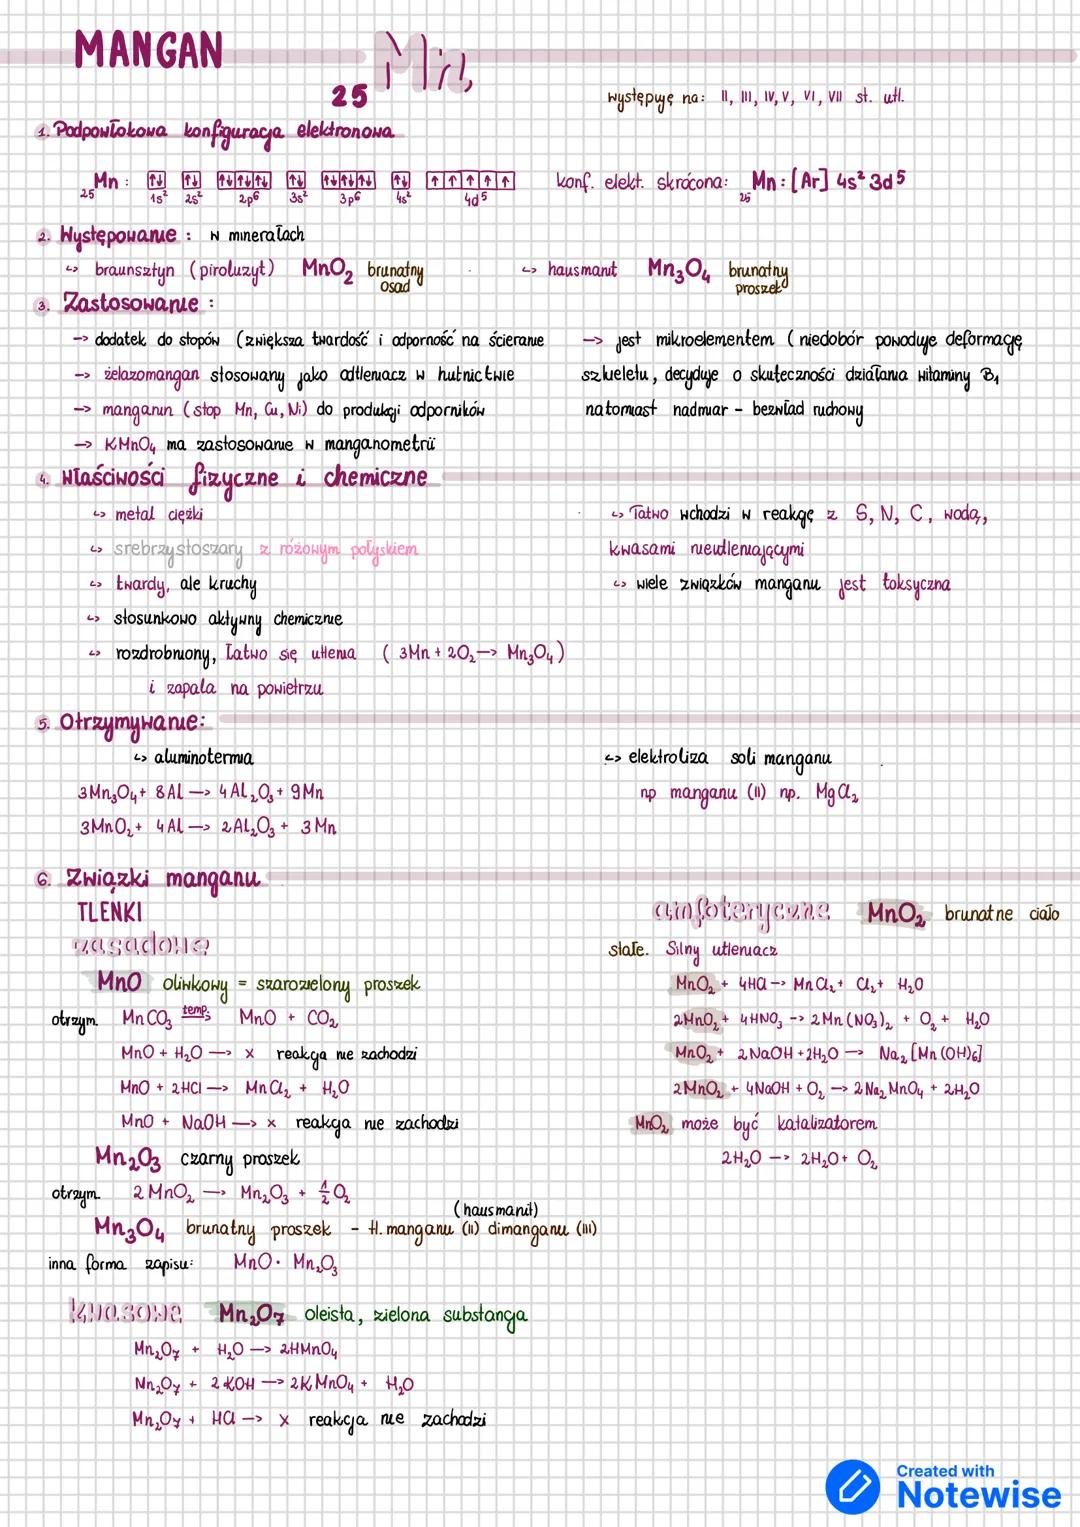 MANGAN
25 Mn
występuję na: II, III, IV, V, VI, VII st. utl.
1. Podpowłokowa konfiguracja elektronowa
25Mn : ↑↓ ↑↓ ↑↓↑↓↑↓ ↑↓ ↑↓↑↓↑↓ ↑↓ ↑↑↑↑↑ konf. elekt. skrócona: 25Mn : [Ar] 4s² 3d⁵
1s² 2s² 2p⁶ 3s² 3p⁶ 4s² 4d⁵
2. Występowanie : w minerałach
↳ braunsztyn (piroluzyt) MnO₂ brunatny osad
↳ hausmanit Mn₃O₄ brunatny proszek
3. Zastosowanie :
→ dodatek do stopów (zwiększa twardość i odporność na ścieranie
→ żelazomangan stosowany jako odtleniacz w hutnictwie
→ manganin (stop Mn, Cu, Ni) do produkcji oporników
→ KMnO₄ ma zastosowanie w manganometrii
→ jest mikroelementem ( niedobór powoduje deformację
szkieletu, decyduje o skuteczności działania witaminy B₁
natomiast nadmiar - bezwład ruchowy
4. Właściwości fizyczne i chemiczne
↳ metal ciężki
↳ srebrzystoszary z różowym połyskiem
↳ twardy, ale kruchy
↳ stosunkowo aktywny chemicznie
↳ rozdrobniony, łatwo się utlenia ( 3Mn + 2O₂ → Mn₃O₄ )
i zapala na powietrzu
↳ Łatwo wchodzi w reakcję z S, N, C, wodą,
kwasami nieutleniającymi
↳ wiele związków manganu jest toksyczna
5. Otrzymywanie:
↳ aluminotermia
3Mn₃O₄ + 8Al → 4Al₂O₃ + 9Mn
3MnO₂ + 4Al → 2Al₂O₃ + 3Mn
↳ elektroliza soli manganu
np manganu (II) np. MgCl₂
6. Związki manganu
TLENKI
zasadowe
MnO oliwkowy = szarozielony proszek
otrzym. MnCO₃ temp. MnO + CO₂
MnO + H₂O → x reakcja nie zachodzi
MnO + 2HCl → MnCl₂ + H₂O
MnO + NaOH → x reakcja nie zachodzi
Mn₂O₃ czarny proszek
otrzym. 2MnO₂ → Mn₂O₃ + ½O₂
(hausmanit)
Mn₃O₄ brunatny proszek - tl. manganu (II) dimanganu (III)
inna forma zapisu: MnO · Mn₂O₃
kwasowe Mn₂O₇ oleista, zielona substancja
Mn₂O₇ + H₂O → 2HMnO₄
Mn₂O₇ + 2KOH → 2KMnO₄ + H₂O
Mn₂O₇ + HCl → x reakcja nie zachodzi
amfoteryczne MnO₂ brunatne ciało
stałe. Silny utleniacz
MnO₂ + 4HCl → MnCl₂ + Cl₂ + H₂O
2MnO₂ + 4HNO₃ → 2Mn(NO₃)₂ + O₂ + H₂O
MnO₂ + 2NaOH + 2H₂O → Na₂[Mn(OH)₆]
2MnO₂ + 4NaOH + O₂ → 2Na₂MnO₄ + 2H₂O
MnO₂ może być katalizatorem
2H₂O → 2H₂O + O₂
Created with
Notewise